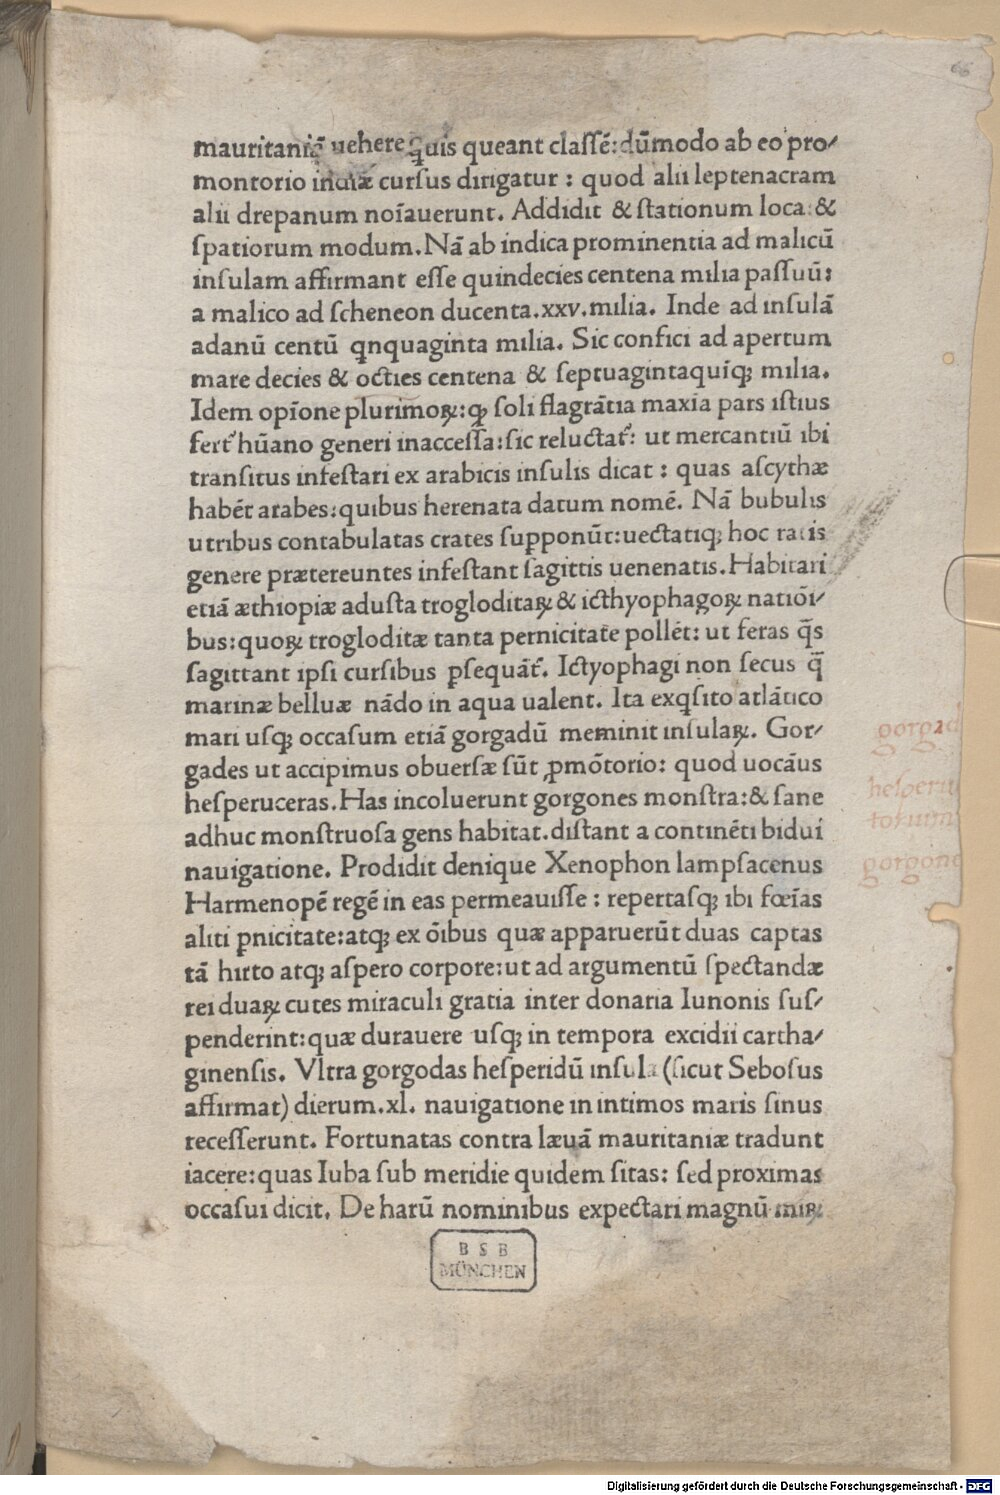 66
mauritaniā uehere quis queant claſſē: dūmodo ab eo pro⸗
montorio indiæ curſus dirigatur : quod alii leptenacram
alii drepanum noīauerunt. Addidit & ſtationum loca &
ſpatiorum modum. Nā ab indica prominentia ad malicū
inſulam affirmant eſſe quindecies centena milia paſſuū:
a malico ad ſcheneon ducenta.xxv.milia. Inde ad inſulā
adanū centū qnquaginta milia. Sic confici ad apertum
mare decies & octies centena & ſeptuagintaquīqꝫ milia.
Idem opīone plurimoꝝ: qꝫ ſoli flagrātia maxīa pars iſtius
fert᷑ hūano generi inacceſſa: ſic reluctat᷑: ut mercantiū ibi
tranſitus infeſtari ex arabicis inſulis dicat : quas aſcythæ
habēt arabes: quibus herenata datum nomē. Nā bubulis
utribus contabulatas crates ſupponūt: uectatiqꝫ hoc ratis
genere prætereuntes infeſtant ſagittis uenenatis. Habitari
etiā æthiopiæ aduſta trogloditaꝝ & icthyophagoꝝ natiōi⸗
bus: quoꝝ trogloditæ tanta pernicitate pollēt: ut feras q̄s
ſagittant ipſi curſibus ꝑſequāt᷑. Ictyophagi non ſecus q̄
marinæ belluæ nādo in aqua ualent. Ita exqſito atlātico
mari uſqꝫ occaſum etiā gorgadū meminit inſulaꝝ. Gor⸗
gades ut accipimus obuerſæ ſūt ꝓmōtorio: quod uocāus
heſperuceras. Has incoluerunt gorgones monſtra: & ſane
adhuc monſtruoſa gens habitat. diſtant a continēti bidui
nauigatione. Prodidit denique Xenophon lampſacenus
Harmenopē regē in eas permeauiſſe : repertaſqꝫ ibi fœīas
aliti ꝑnicitate: atqꝫ ex ōibus quæ apparuerūt duas captas
tā hirto atqꝫ aſpero corpore: ut ad argumentū ſpectandæ
rei duaꝝ cutes miraculi gratia inter donaria Iunonis ſuſ⸗
penderint: quæ durauere uſqꝫ in tempora excidii cartha⸗
ginenſis. Vltra gorgodas heſperidū inſulæ (ſicut Seboſus
affirmat) dierum.xl. nauigatione in intimos maris ſinus
receſſerunt. Fortunatas contra læuā mauritaniæ tradunt
iacere: quas Iuba ſub meridie quidem ſitas: ſed proximas
occaſui dicit. De harū nominibus expectari magnū miꝝ
gorgad
heſperu
gorgone
B S B
MÜNCHEN
Digitalisierung gefördert durch die Deutsche Forschungsgemeinschaft - DFG